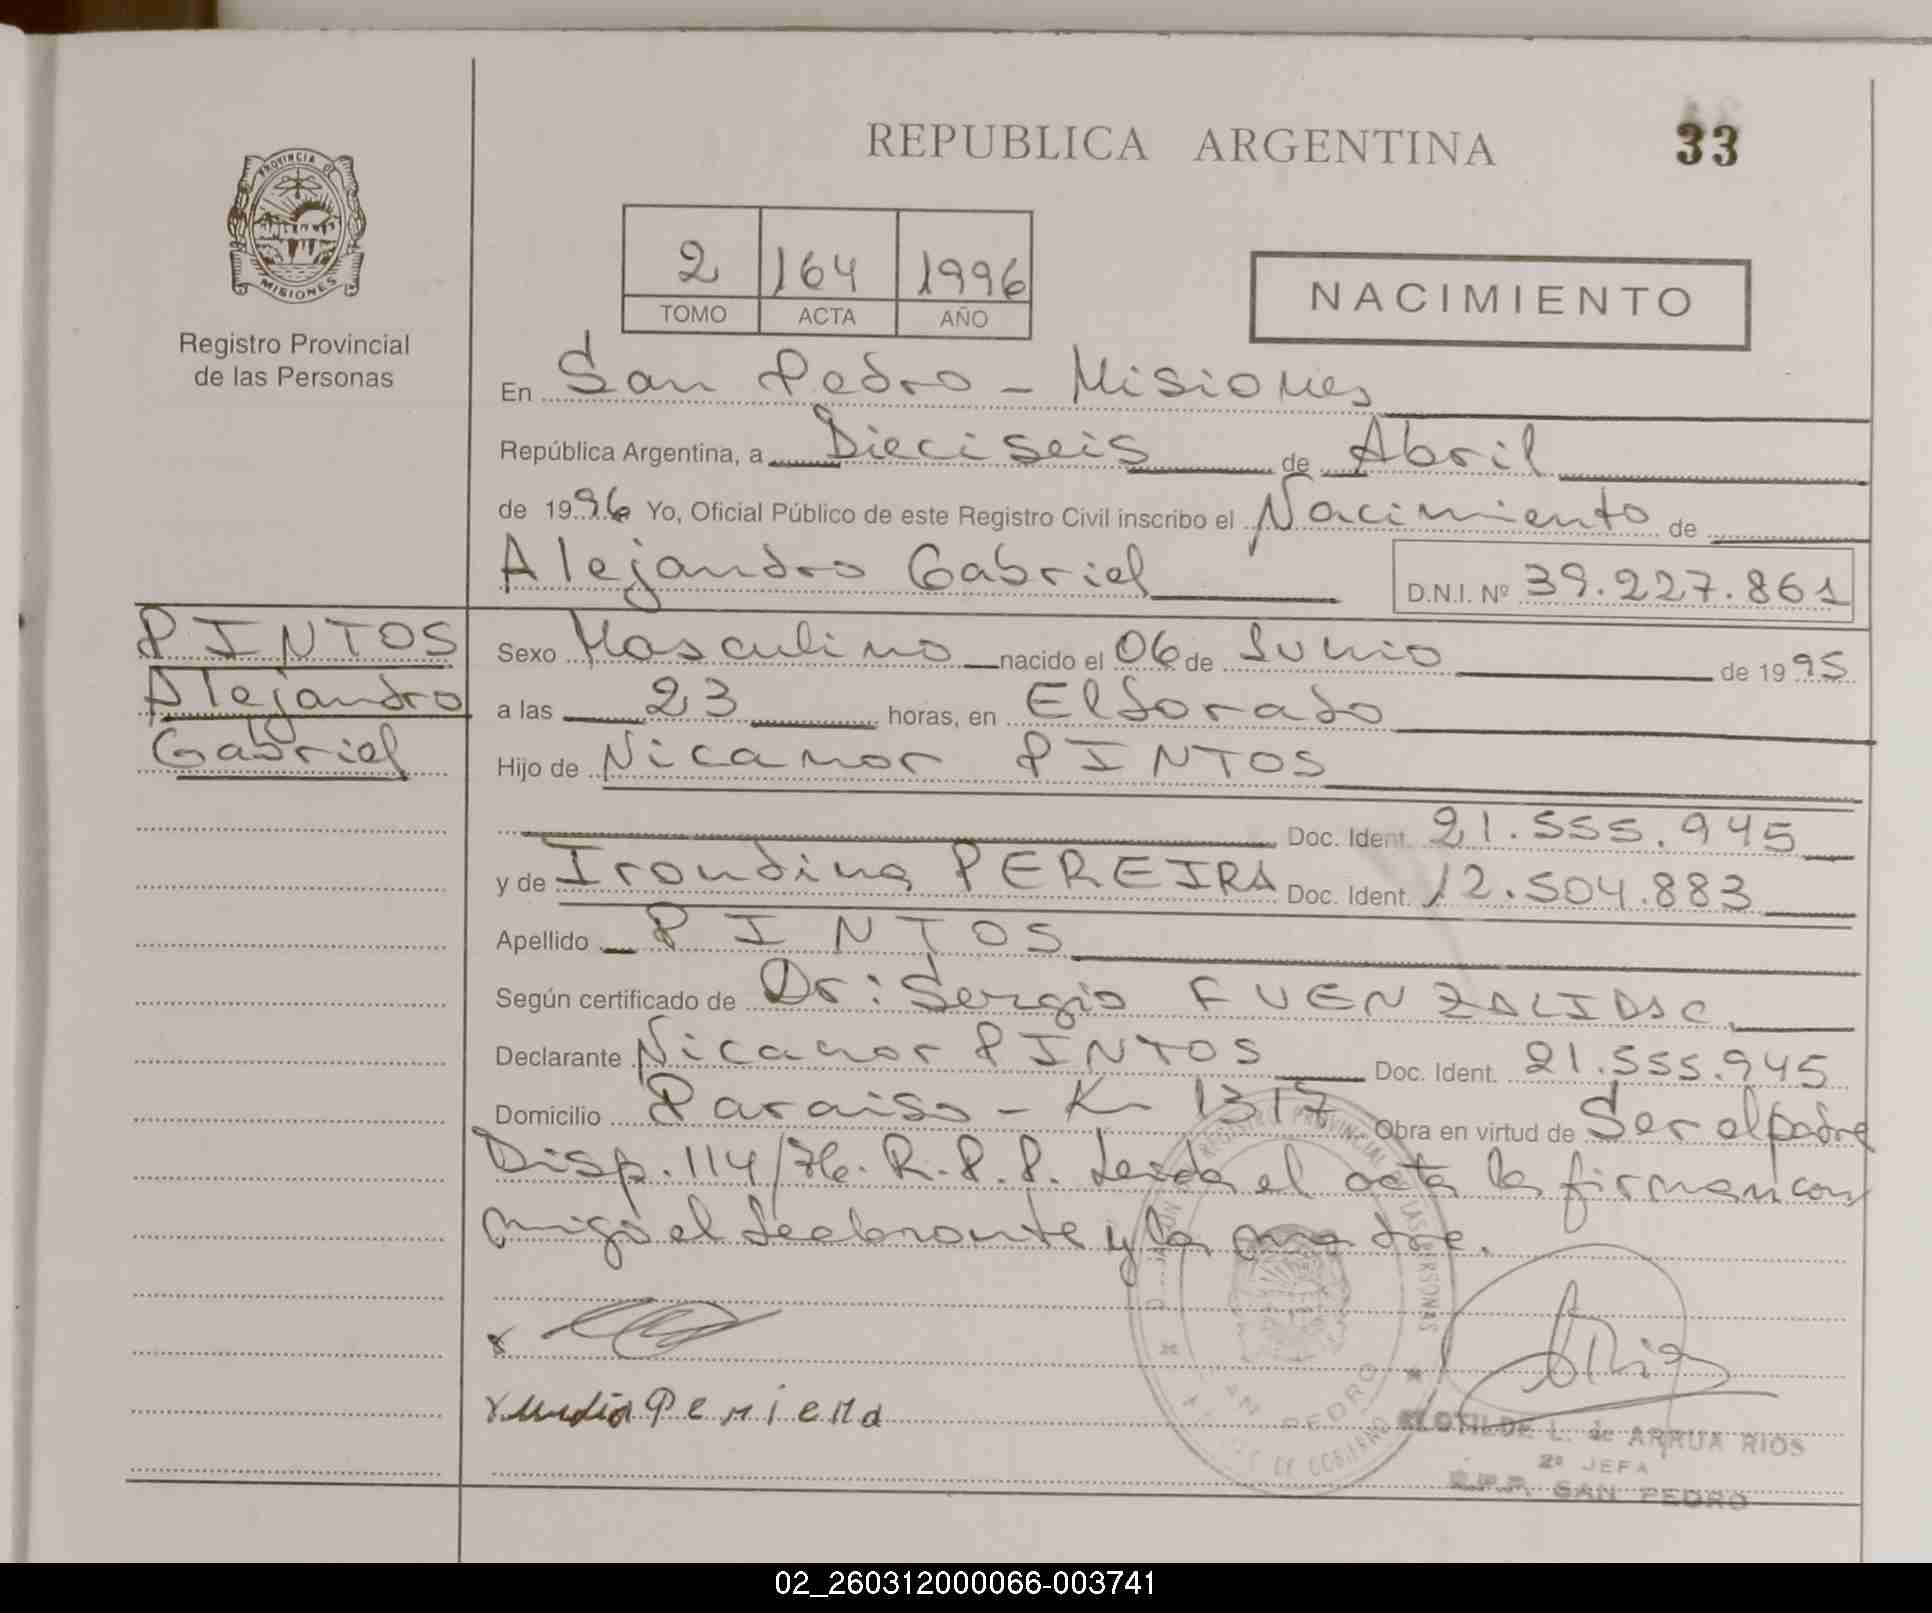 REPUBLICA ARGENTINA
33
PROVINCIA DE
MISIONES
Registro Provincial
de las Personas
2 164 1996
TOMO ACTA AÑO
NACIMIENTO
En San Pedro - Misiones
República Argentina, a Dieciseis de Abril
de 1996 Yo, Oficial Público de este Registro Civil inscribo el Nacimiento de
Alejandro Gabriel D.N.I. Nº 39.227.861
PINTOS
Alejandro
Gabriel
Sexo Masculino nacido el 06 de Junio de 1995
a las 23 horas, en Eldorado
Hijo de Nicanor PINTOS
Doc. Ident. 21.555.945
y de Irondina PEREIRA Doc. Ident. 12.504.883
Apellido PINTOS
Según certificado de Dr: Sergio FUENZALIDAC
Declarante Nicanor PINTOS Doc. Ident. 21.555.945
Domicilio Paraiso - Km 1317 Obra en virtud de Ser el padre
Disp. 114/76. R.P.P. Leida el acta la firman con
migo el declarante y la madre.
REGISTRO PROVINCIAL DE LAS PERSONAS
SAN PEDRO
DE GOBIERNO
Pereira
CLOTILDE L. de ARRUA RIOS
2ª JEFA
SAN PEDRO
02_260312000066-003741